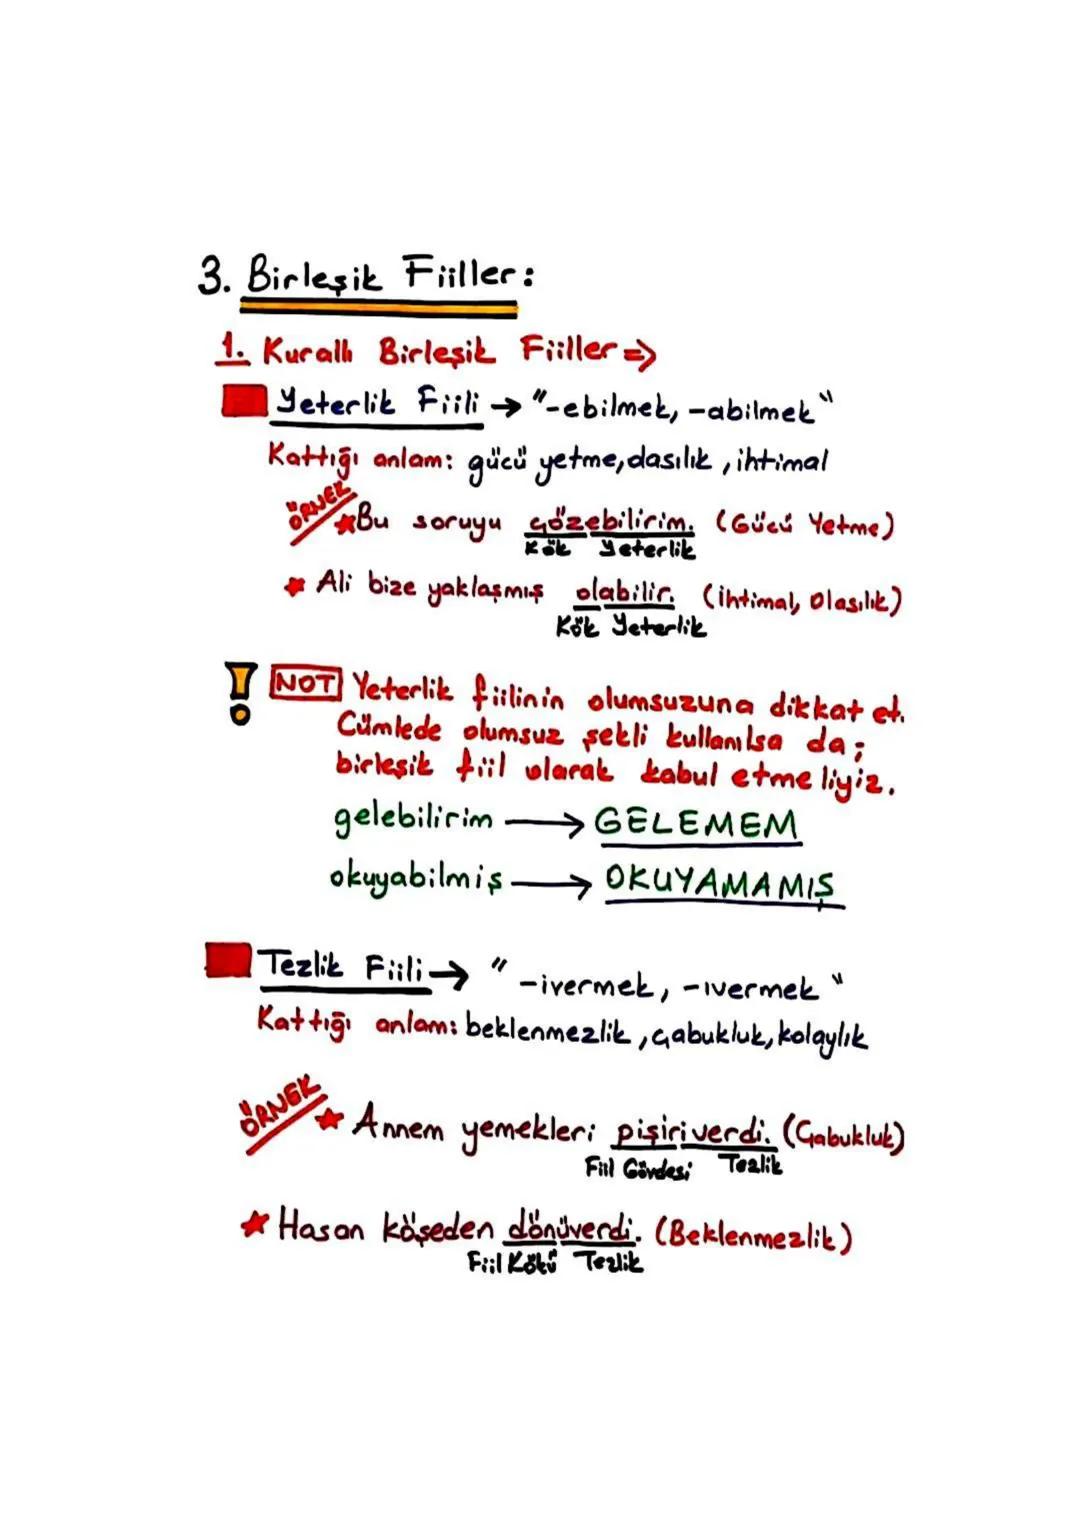 3. Birleşik Fiiller:
1. Kurallı Birleşik Fiiller =>
Yeterlik Fiili → "-ebilmek, -abilmek"
Kattığı anlam: gücü yetme, dasılık, ihtimal
ÖRNEK
★Bu soruyu çözebilirim. (Gücü Yetme)
Kök Yeterlik
★ Ali bize yaklaşmış olabilir. (İhtimal, Olasılık)
Kök Yeterlik
! NOT Yeterlik fiilinin olumsuzuna dikkat et.
Cümlede olumsuz şekli kullanılsa da;
birleşik fiil olarak kabul etmeliyiz.
gelebilirim → GELEMEM
okuyabilmiş → OKUYAMAMIŞ
Tezlik Fiili → "-ivermek, -ıvermek"
Kattığı anlam: beklenmezlik, çabukluk, kolaylık
ÖRNEK
★ Annem yemekleri pişiriverdi. (Çabukluk)
Fiil Gövdesi Tezlik
★ Hasan köşeden dönüverdi. (Beklenmezlik)
Fiil Kökü Tezlik